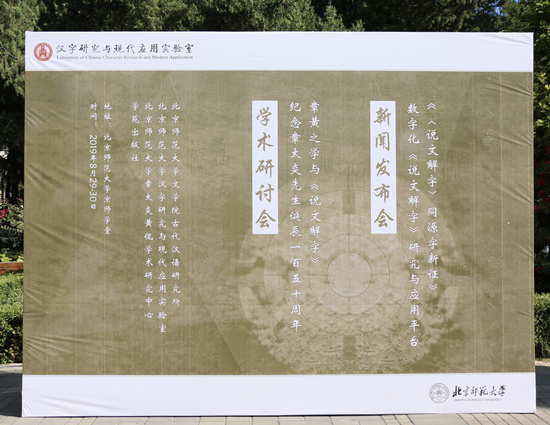 汉字研究与现代应用实验室
Laboratory of Chinese Character Research and Modern Application
《〈说文解字〉同源字新证》
数字化《说文解字》研究与应用平台
新闻发布会
章黄之学与《说文解字》
纪念章太炎先生诞辰一百五十周年
学术研讨会
北京师范大学文学院古代汉语研究所
北京师范大学汉字研究与现代应用实验室
北京师范大学章太炎黄侃学术研究中心
学苑出版社
地址：北京师范大学京师学堂
时间：2019年8月29-30日
北京师范大学
BEIJING NORMAL UNIVERSITY